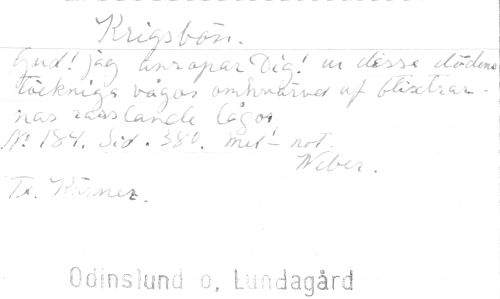 Krigsbön.
Gud! jag anropar Dig! ur dessa dödens
töckniga vågor omhvärvd af blixtrar-
nas rasslande lågor
No 184. Sid. 380. mel- not.
Weber.
Tx. Körner.
Odinslund o, Lundagård